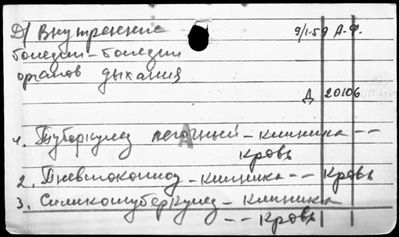 Д/ Внутренние 9/I-59 А.Ф.
болезни - болезни
органов дыхания
Д 20106
1. Туберкулез легочный - клиника --
кровь
2. Пневмокониоз - клиника -- кровь
3. Силикотуберкулез - клиника
-- кровь